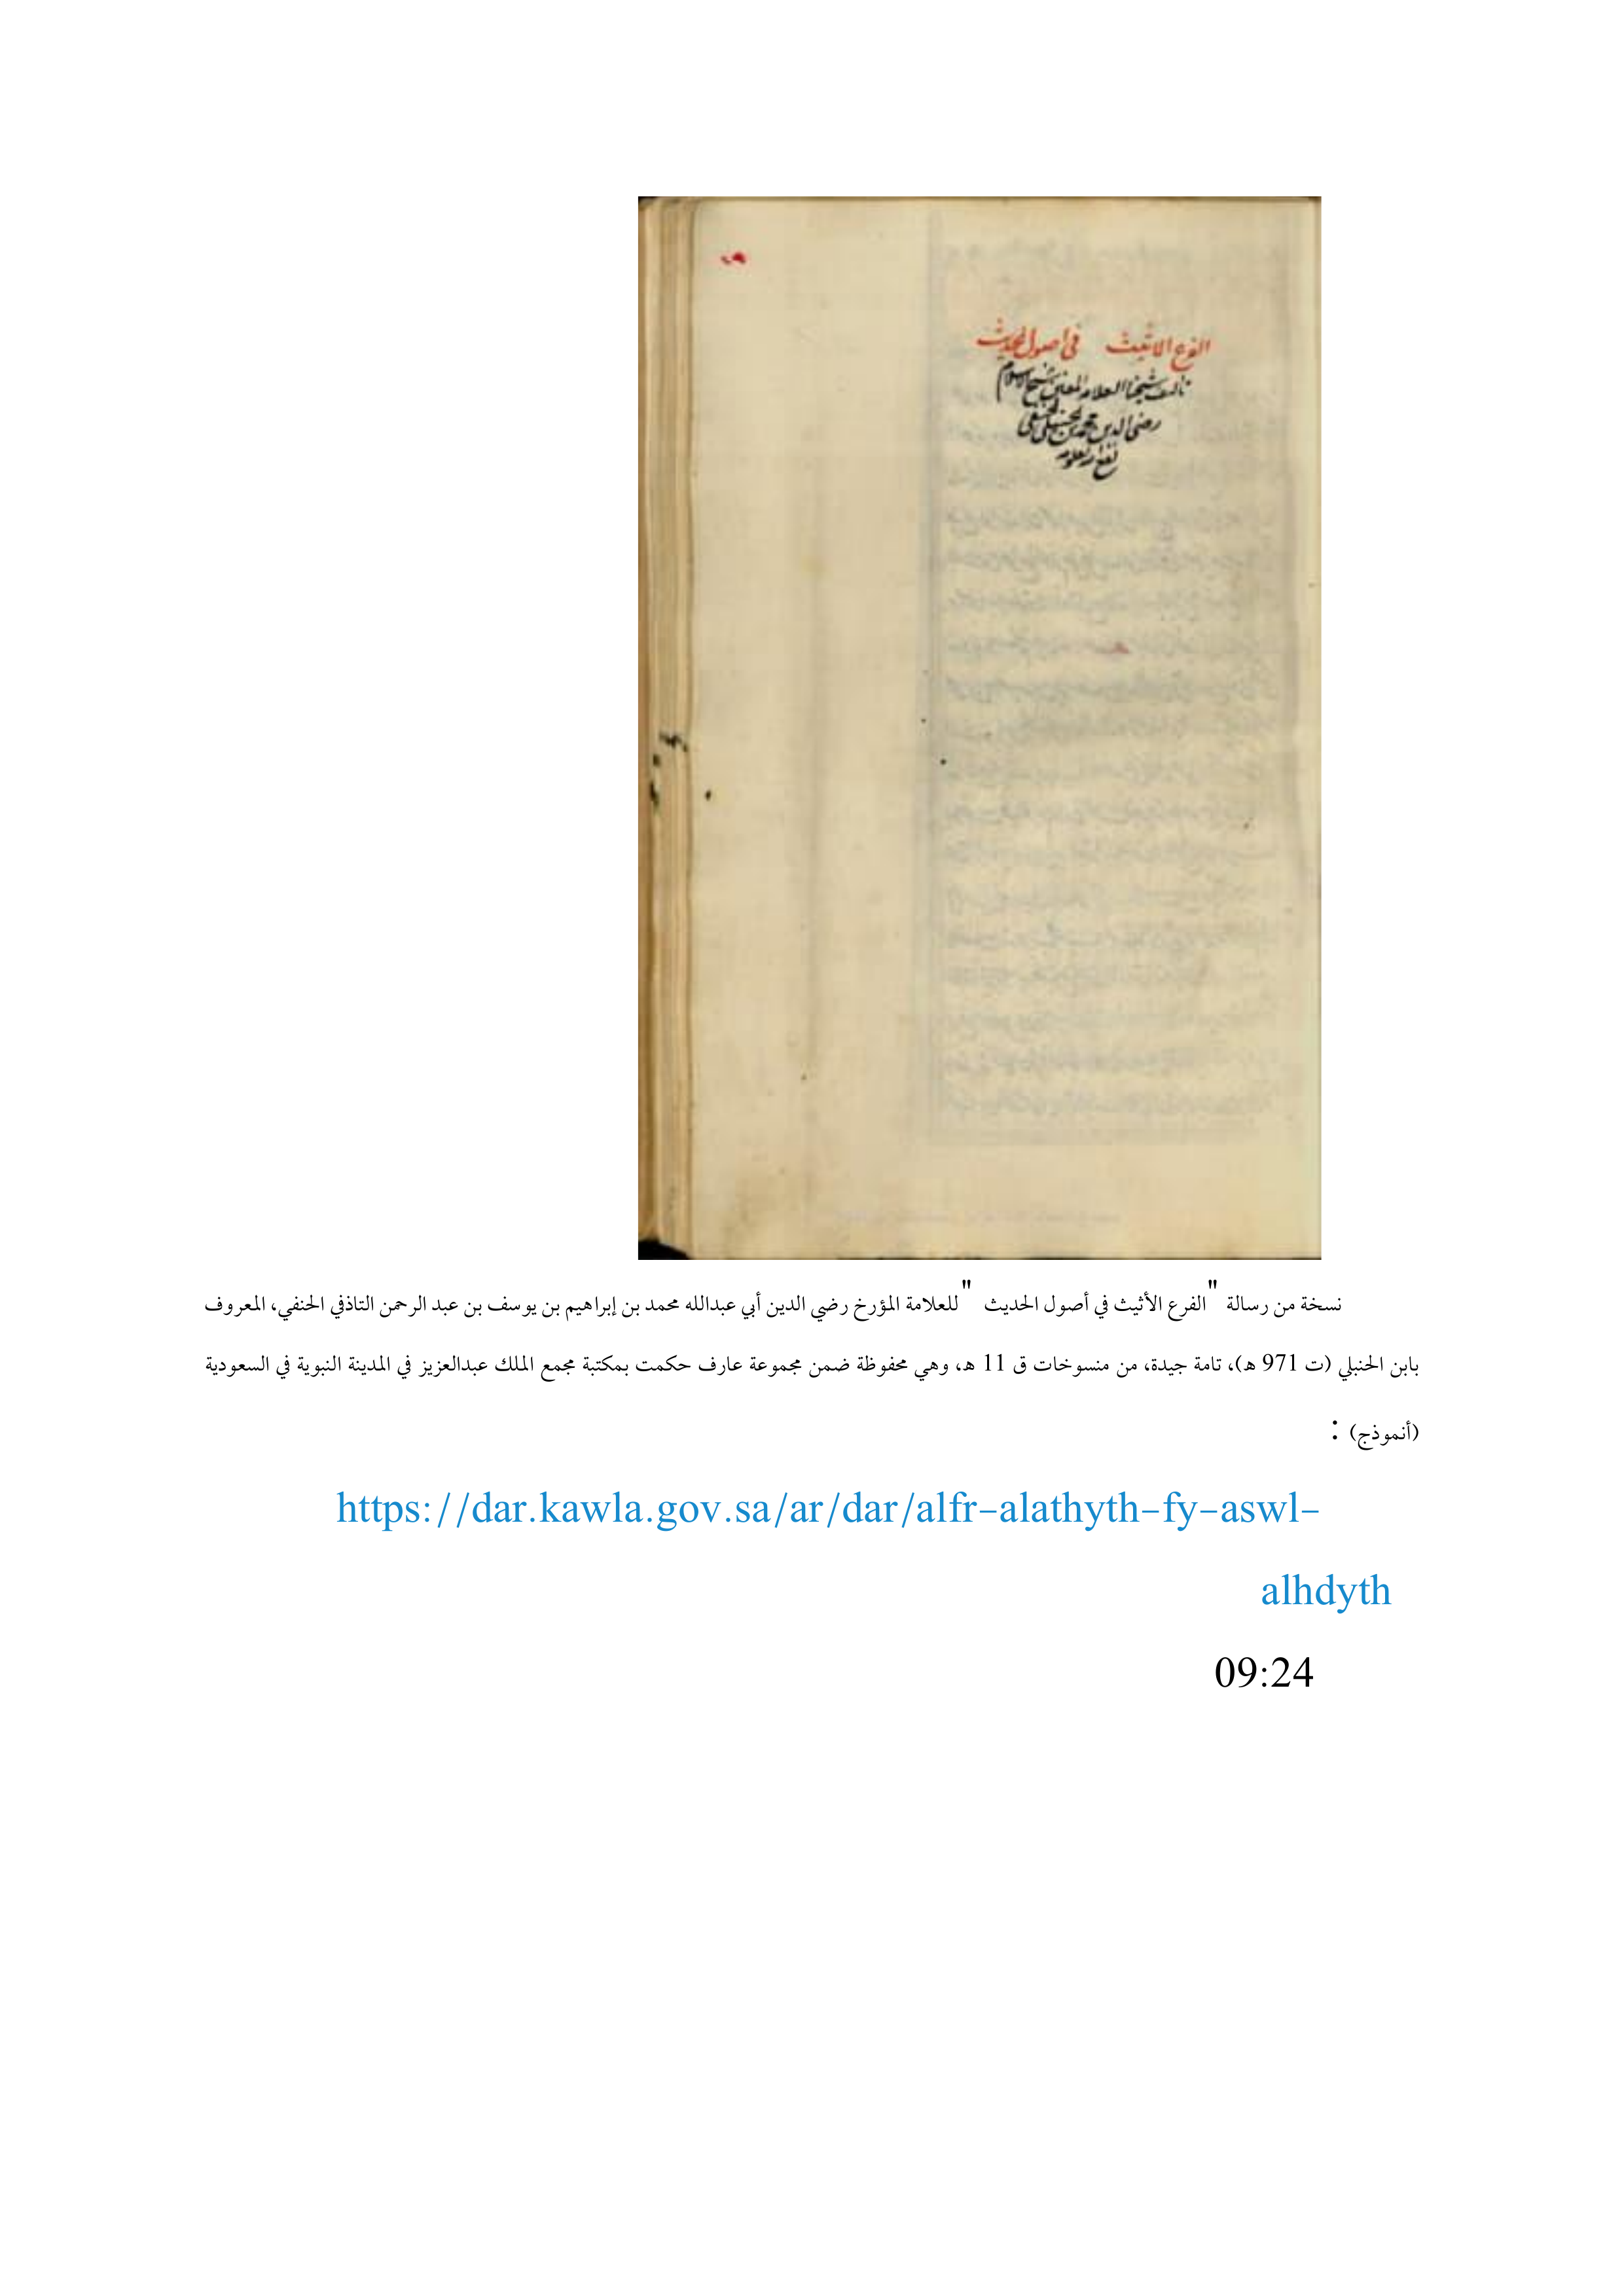 الفرع الاثيث في اصول الحديث
تاليف شيخنا العلامه المفنن شيخ الاسلام
رضى الدين محمد بن الحنبلي الحنفي
نسخة من رسالة "الفرع الأثيث في أصول الحديث " للعلامة المؤرخ رضي الدين أبي عبدالله محمد بن إبراهيم بن يوسف بن عبد الرحمن التاذفي الحنفي، المعروف
بابن الحنبلي (ت 971 هـ)، تامة جيدة، من منسوخات ق 11 هـ، وهي محفوظة ضمن مجموعة عارف حكمت بمكتبة مجمع الملك عبدالعزيز في المدينة النبوية في السعودية
(أنموذج) :
https://dar.kawla.gov.sa/ar/dar/alfr-alathyth-fy-aswl-
alhdyth
09:24